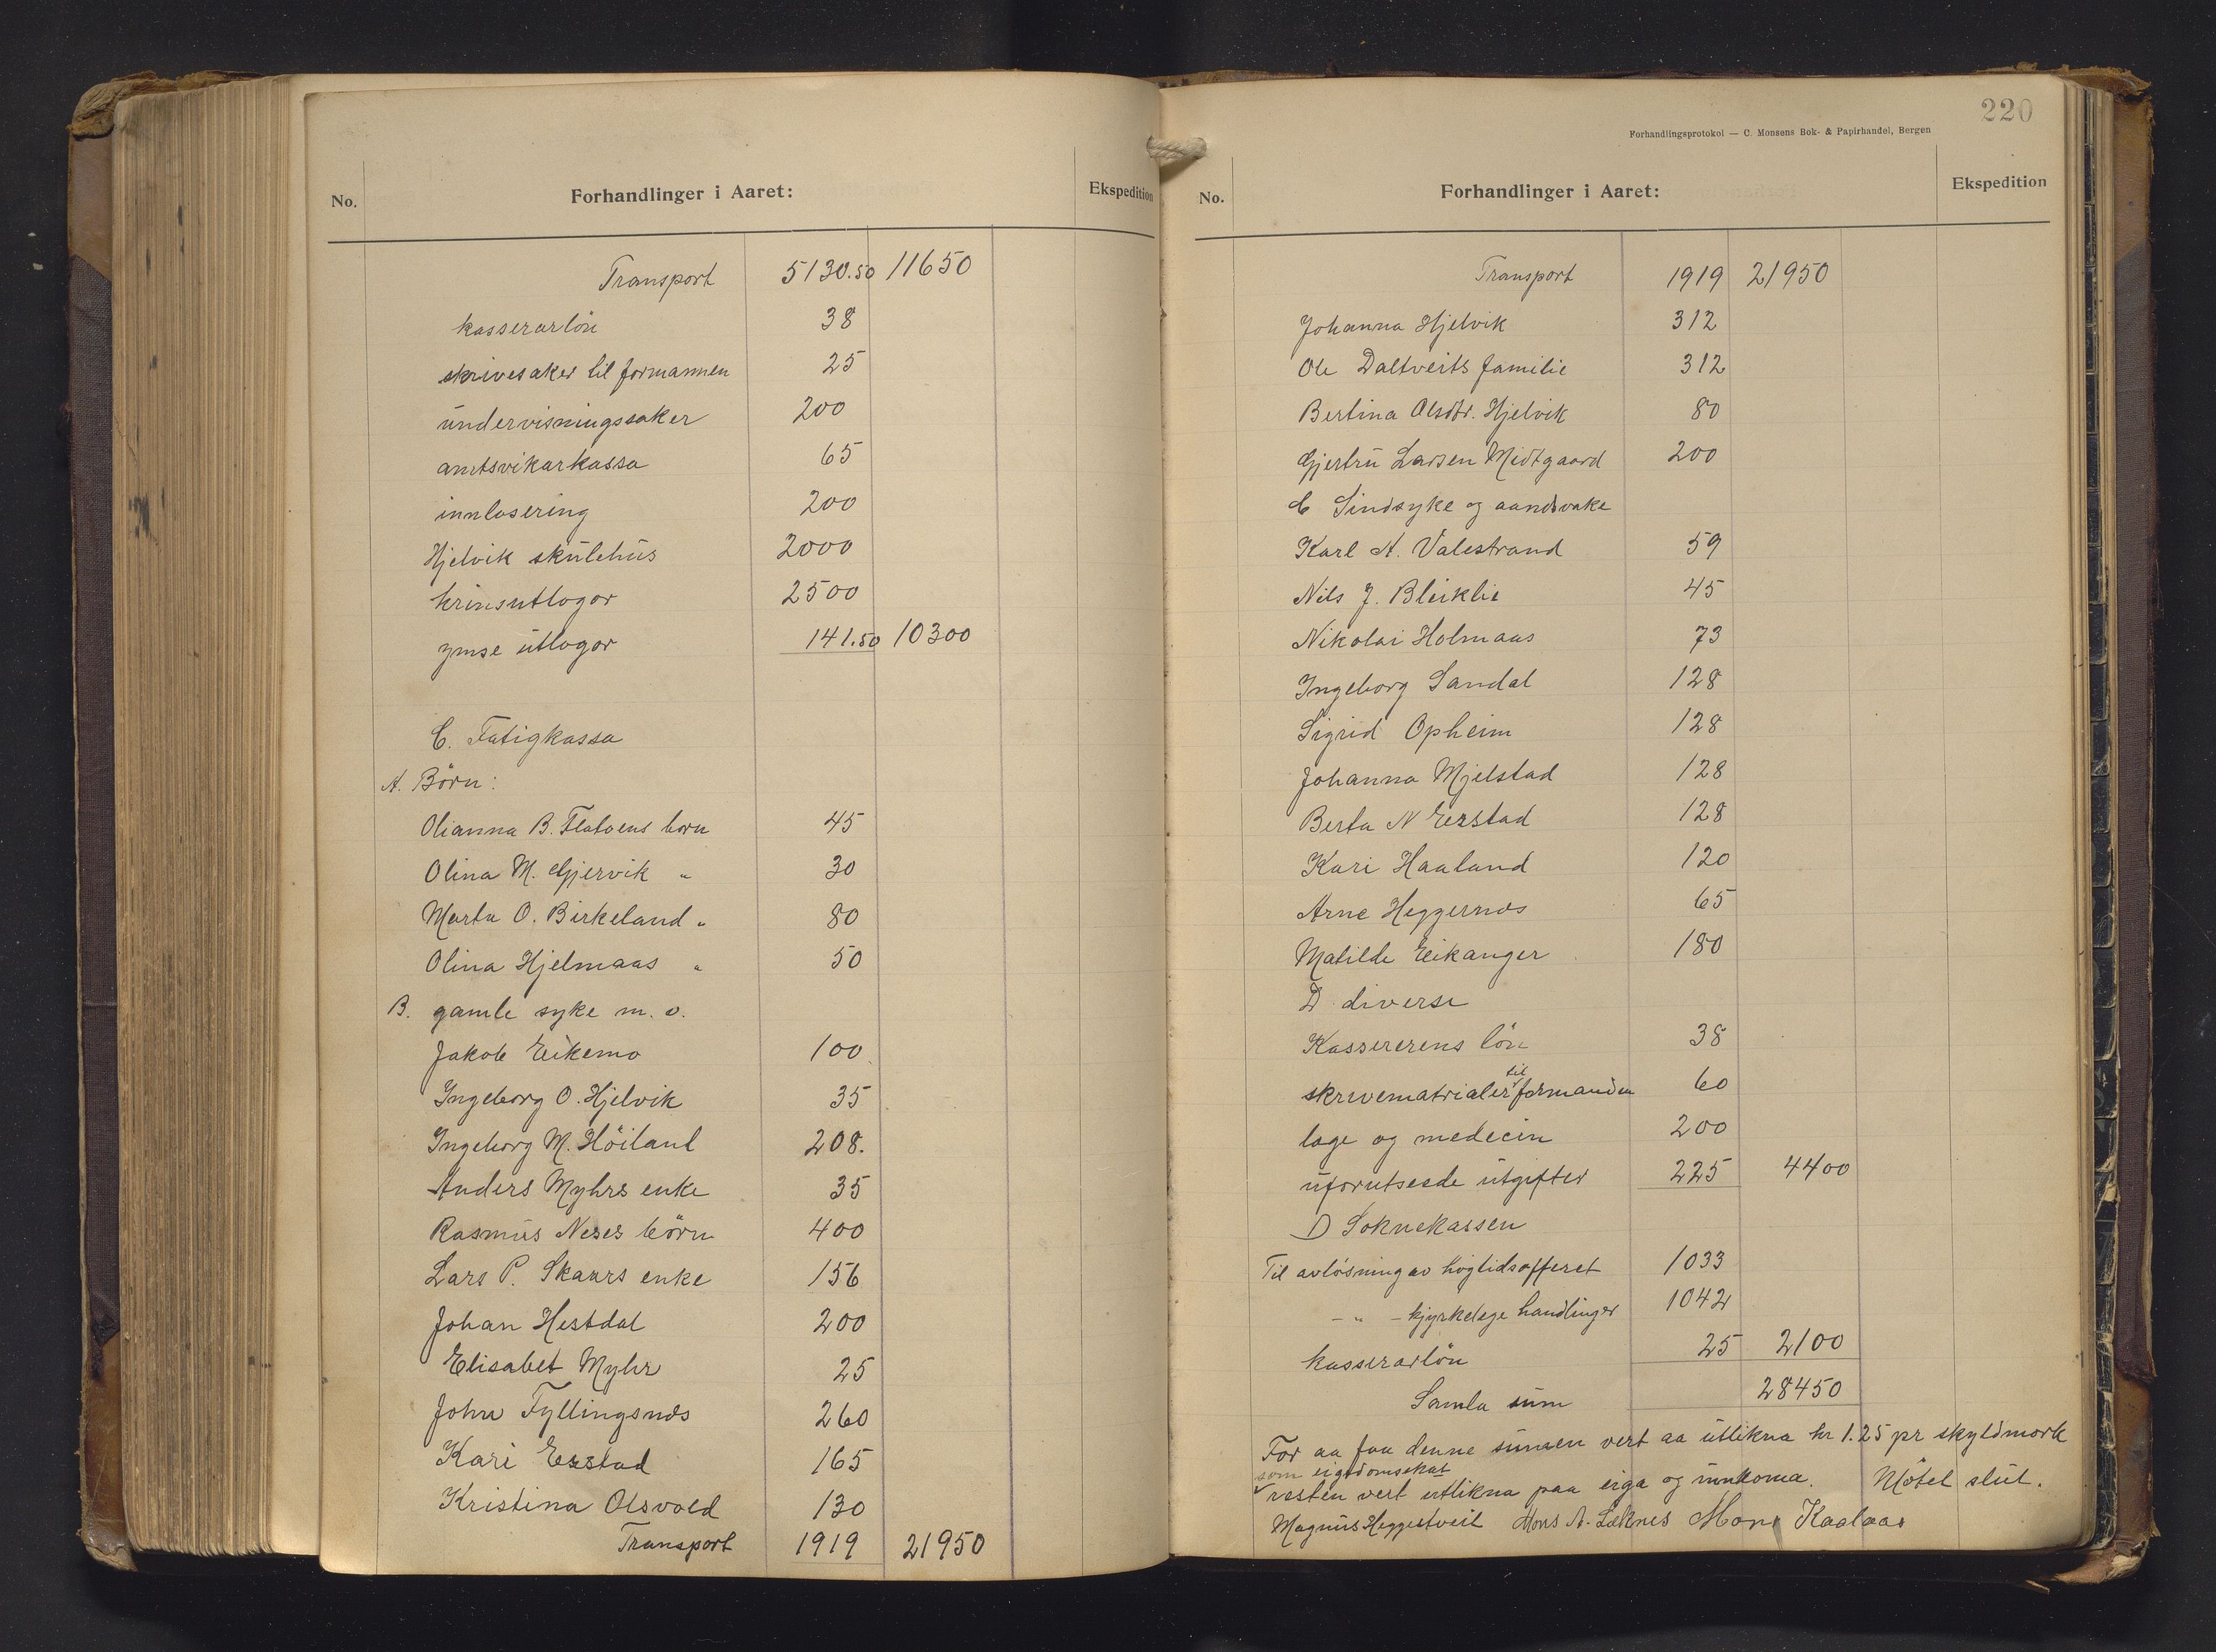 No. Forhandlinger i Aaret: Ekspedition
Transport 5130.50 11650
kasserarløn 38
skrivesaker til formannen 25
undervisningssaker 200
amtsvikarkassa 65
innlosering 200
Hjelvik skulehus 2000
krinsutlogor 2500
ymse utlogor 141.50 10300
C. Fatigkassa
A. Börn:
Olianna B. Flatøens born 45
Olina M. Gjervik " 30
Marta O. Birkeland " 80
Olina Hjelmaas " 50
B. gamle syke m. v.
Jakob Eikemo 100
Ingeborg O. Hjelvik 35
Ingeborg M. Höiland 208.
Anders Myhrs enke 35
Rasmus Neses börn 400
Lars P. Skaurs enke 156
Johan Hestdal 200
Elisabet Myhr 25
John Fyllingsnes 260
Kari Erstad 165
Kristina Olsvold 130
Transport 1919 21950
220
Forhandlingsprotokol — C. Monsens Bok- & Papirhandel, Bergen
No. Forhandlinger i Aaret: Ekspedition
Transport 1919 21950
Johanna Hjelvik 312
Ole Daltveits familie 312
Bertina Olsdtr. Hjelvik 80
Gjertru Larsen Midtgaard 200
C Sindsyke og aandsvake
Karl A. Valestrand 59
Nils J. Bleiklie 45
Nikolai Holmaas 73
Ingeborg Sandal 128
Sigrid Opheim 128
Johanna Mjelstad 128
Berta N Eerstad 128
Kari Haaland 120
Arne Heggernes 65
Matilde Eikanger 180
D diverse
Kassererens lön 38
skrivematrialer til formanden 60
læge og medecin 200
uforutseede utgifter 225 4400
D Soknekassen
Til avlösning av högtidsofferet 1033
- " - kjyrkelege handlinger 1042
kasserarlön 25 2100
Samla sum 28450
For aa faa denne summen vert aa utlikna kr 1.25 pr skyldmork
som eigedomsskat
resten vert utlikna paa eiga og innkoma. Mötet slut.
Magnus Heggestveit Mons A. Læknes Mons Kaalaas